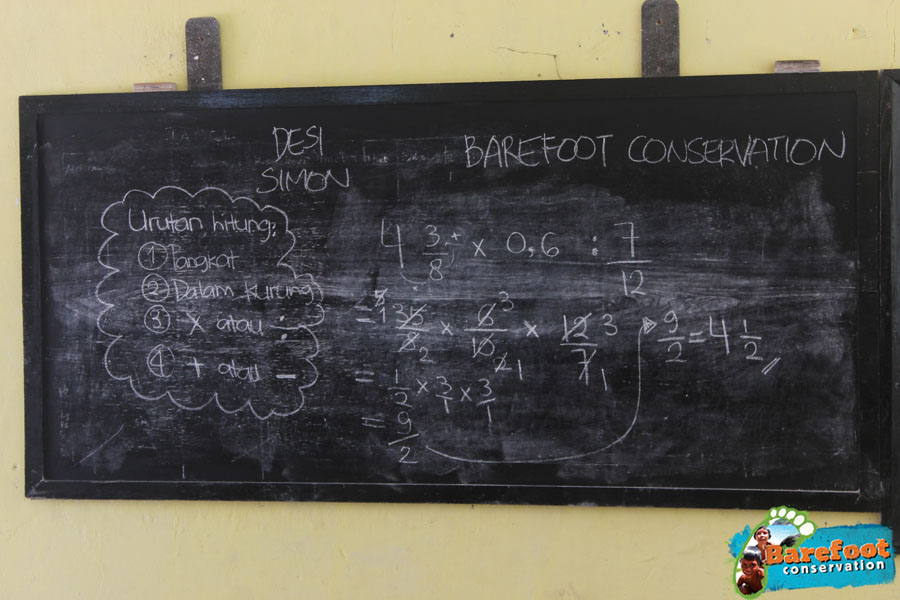 DESI
SIMON
BAREFOOT CONSERVATION
Urutan hitung:
① Pangkat
② Dalam kurung
③ × atau ÷
④ + atau −
4 3/8 × 0,6 : 7/12
= 35/8 × 6/10 × 12/7
= 1/2 × 3/1 × 3/1
= 9/2
9/2 = 4 1/2
Barefoot
conservation